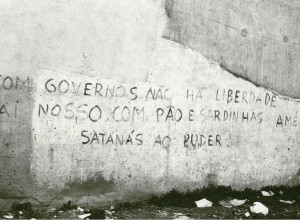 COM GOVERNOS NÃO HÁ LIBERDADE
AI NOSSO, COM PÃO E SARDINHAS AMÉ
SATANÁS AO PUDER!